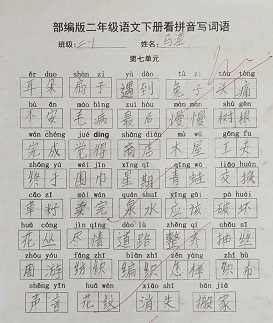 部编版二年级语文下册看拼音写词语
班级: 姓名:
第七单元
ěr duo shàn zi yù dào tù zi tóu tòng
耳朵 扇子 遇到 兔子 头痛
bù ān máo bìng zuì hòu màn màn shù gēn
不安 毛病 最后 慢慢 树根
wán chéng jué ding shāng diàn mù wū gōng fu
完成 觉得 商店 木屋 工夫
zhōng yú wéi jīn xīng qī qīng wā jiāo huàn
终于 围巾 星期 青蛙 交换
cǎo zǐ mài wán quán shuǐ yīng gāi pò huài
草籽 卖完 泉水 应该 破坏
huā cóng jìn qíng dào lù zhěng qí chōu sī
花丛 尽情 道路 整齐 抽丝
zhōu yóu fǎng zhī biān zhī zěn yàng zhī bù
周游 纺织 编织 怎样 织布
shēng yīn huā wén xiāo shī bān jiā
声音 花纹 消失 搬家